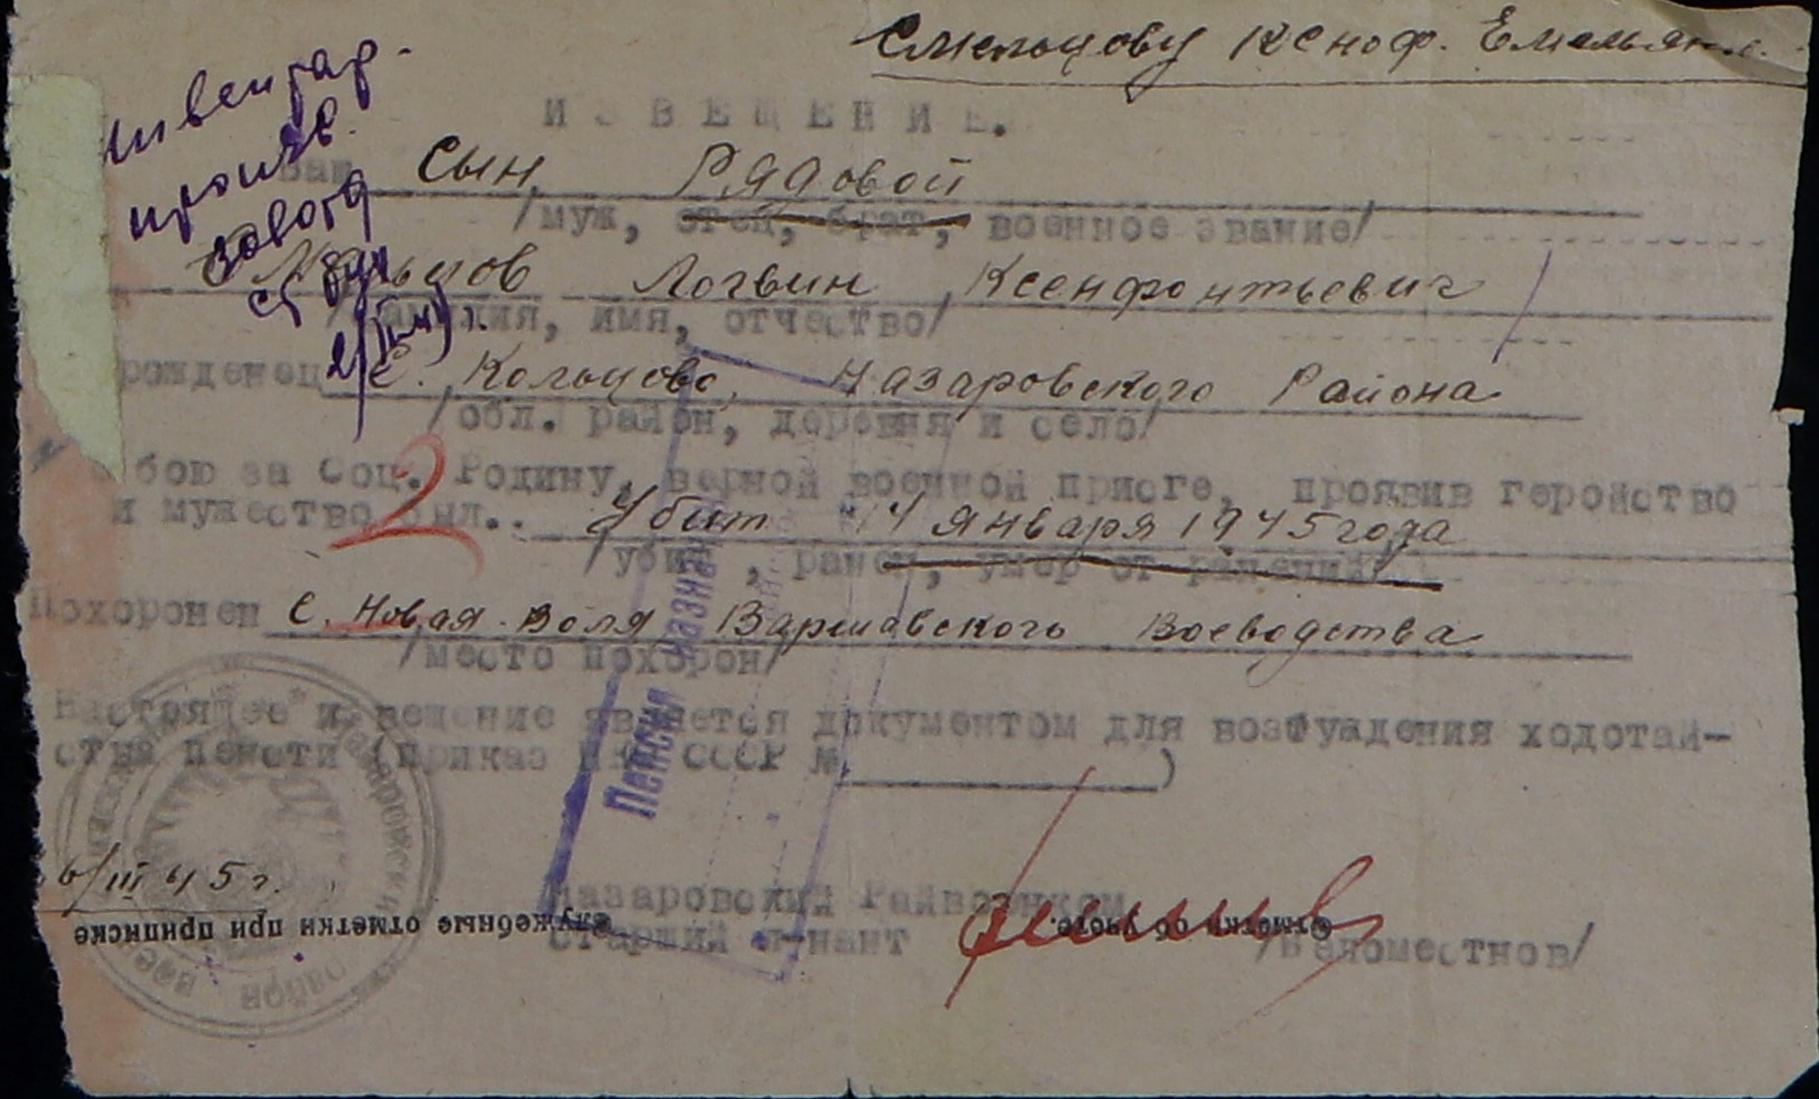 Смельцову Ксеноф. Емельян.
ИЗВЕЩЕНИЕ.
Ваш сын, Рядовой
/муж, отец, брат, военное звание/
Смельцов Логвин Ксенфонтьевич
/фамилия, имя, отчество/
рожденец с. Кольцово, Назаровского Района
/обл. район, деревня и село/
бою за Соц. Родину, верной военной присге, проявив геройство
и мужество был.. Убит 14 января 1945 года
/убит, ранен, умер от ранений/
2
Похоронен с. Новая-Воля Варшавского Воеводства
/место похорон/
Настоящее извещение является документом для возбуждения ходотай-
ства пенсти (приказ НКО СССР №)
6/III 45 г.
Назаровский Райвоенком
старший л-нант /Беломестнов/
Служебные отметки при приписке
Отметки об учете.
Пенсия назна